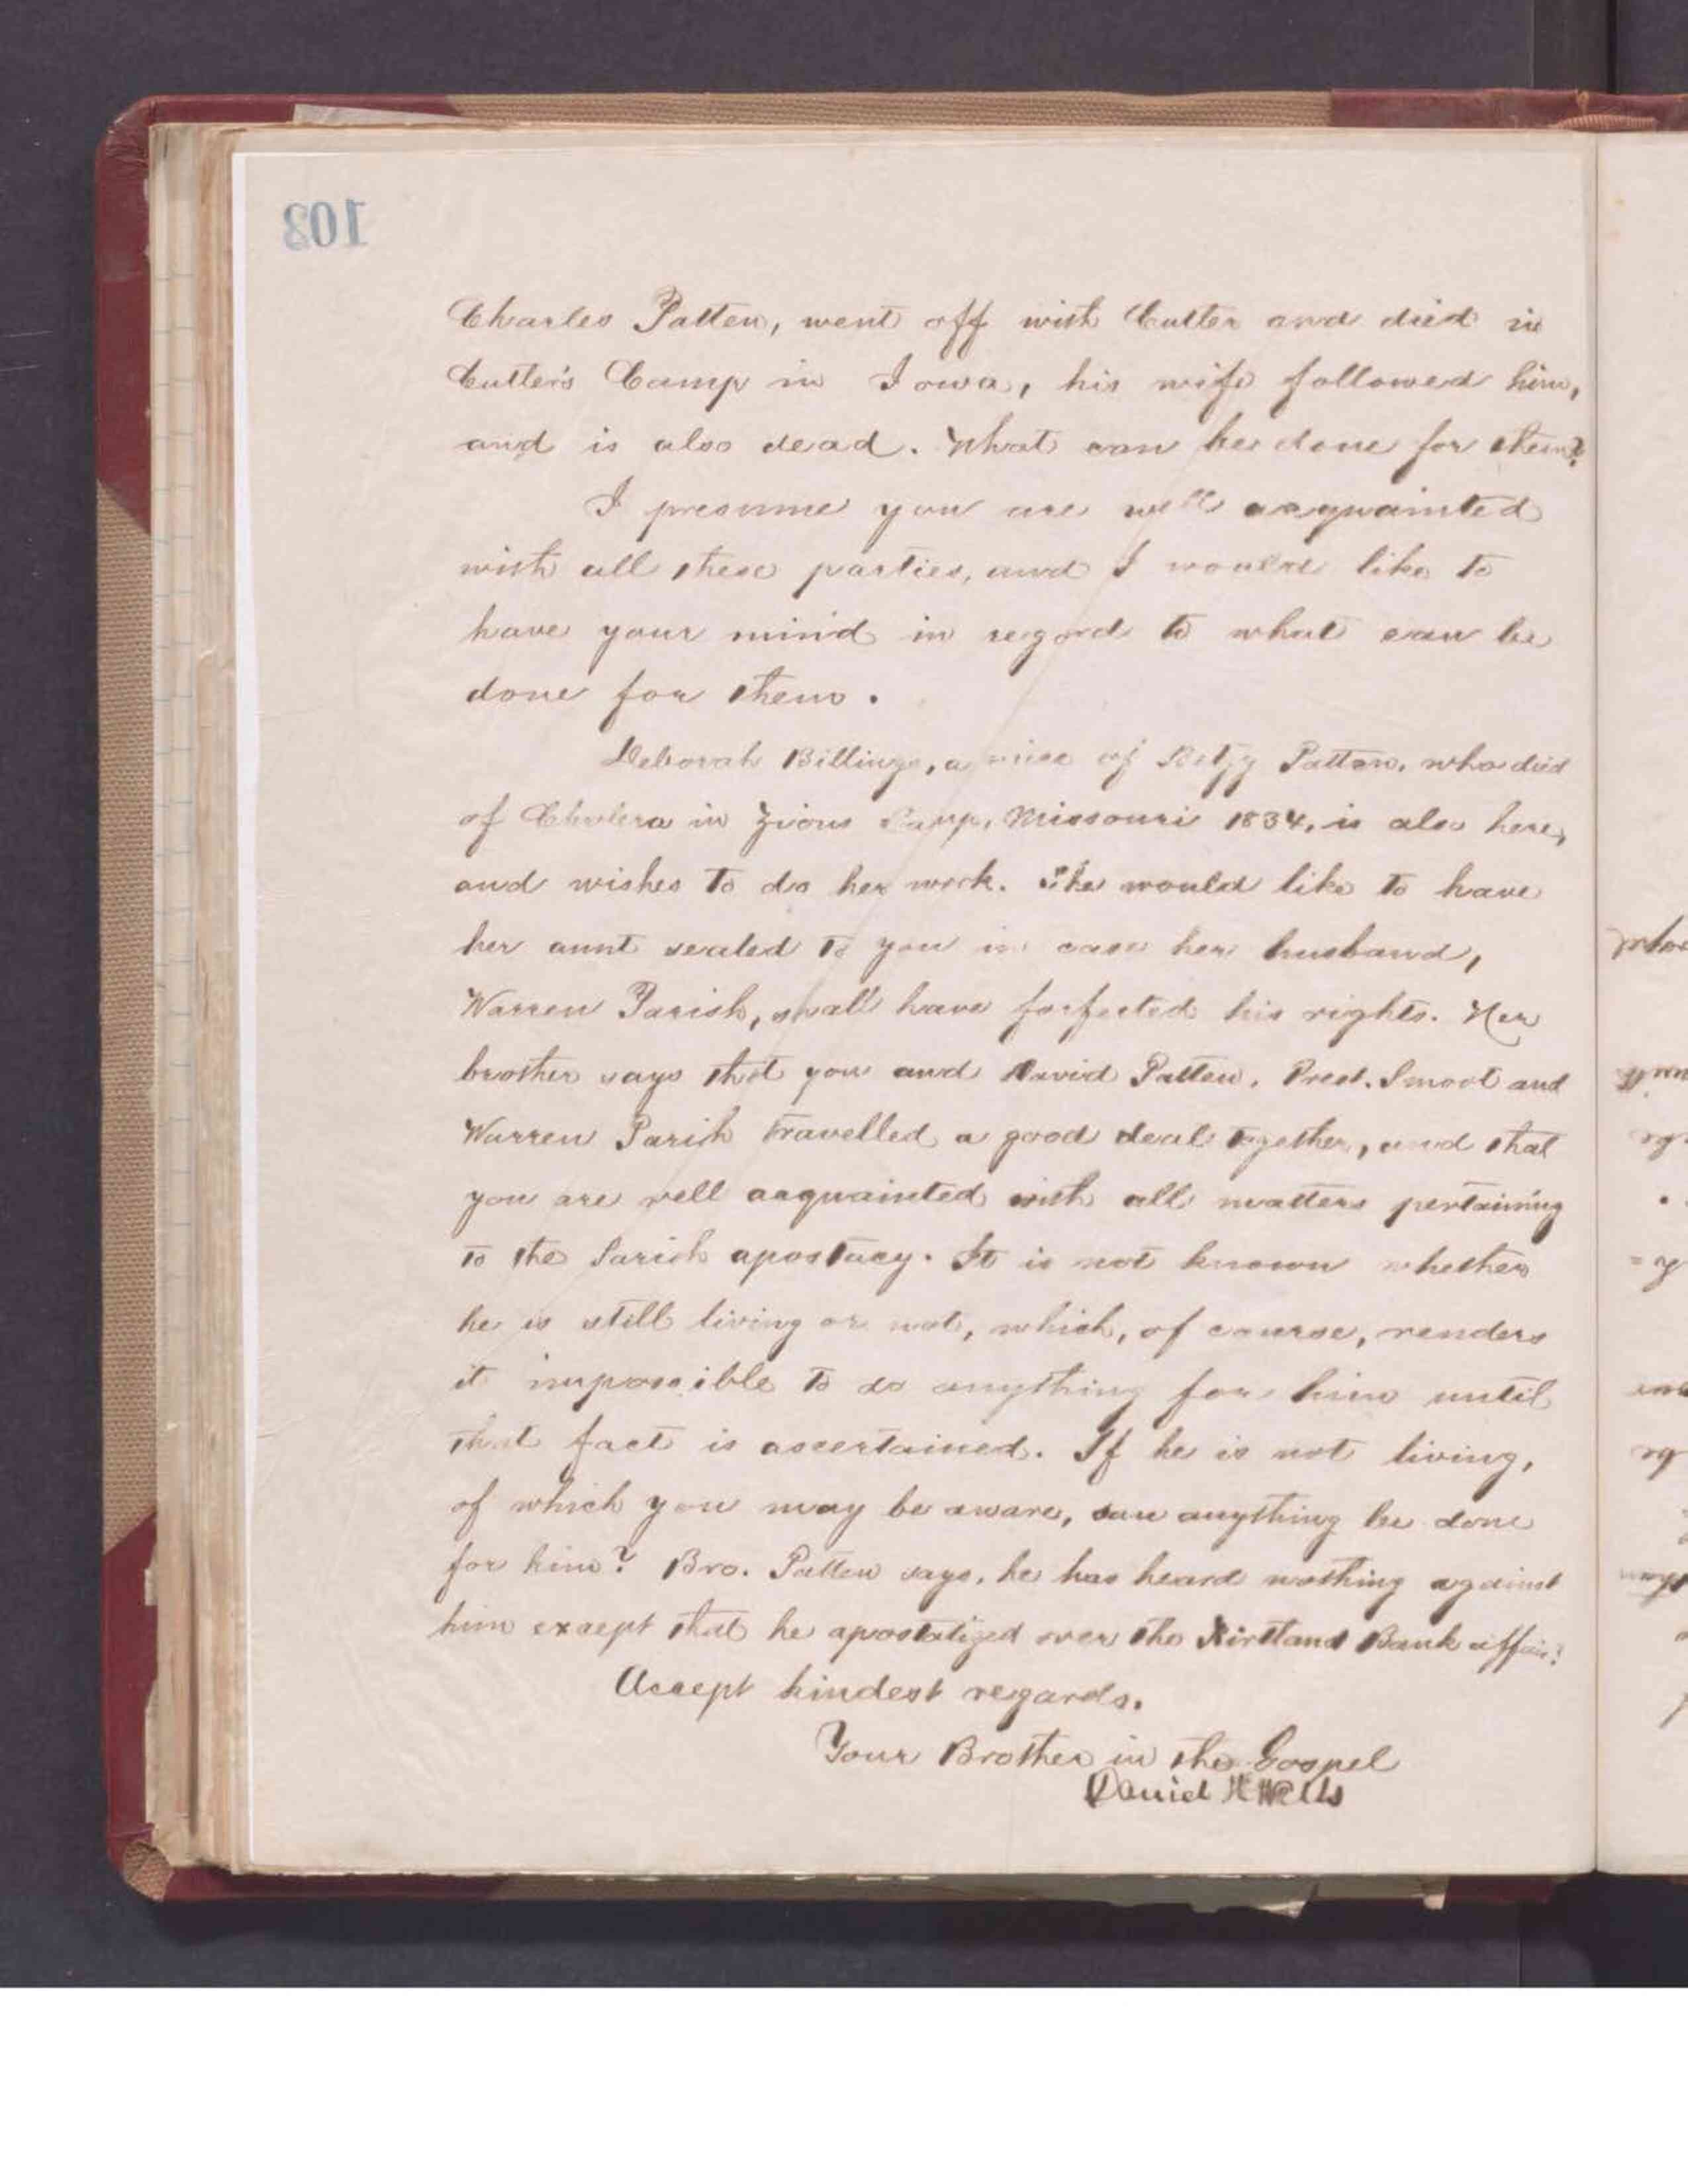 103
Charles Patten, went off with Cutler and died in
Cutler's Camp in Iowa, his wife followed him,
and is also dead. What can be done for them?
I presume you are well acquainted
with all these parties, and I would like to
have your mind in regard to what can be
done for them.
Deborah Billings, a niece of Betsy Patten, who died
of Cholera in Zions Camp, Missouri 1834, is also here,
and wishes to do her work. She would like to have
her aunt sealed to you in case her husband,
Warren Parish, shall have forfeited his rights. Her
brother says that you and David Patten, Prest. Smoot and
Warren Parish travelled a good deal together, and that
you are well acquainted with all matters pertaining
to the Parish apostacy. It is not known whether
he is still living or not, which, of course, renders
it impossible to do anything for him until
that fact is ascertained. If he is not living,
of which you may be aware, can anything be done
for him? Bro. Patten says, he has heard nothing against
him except that he apostatized over the Kirtland Bank affair.
Accept kindest regards.
Your Brother in the Gospel
Daniel H Wells